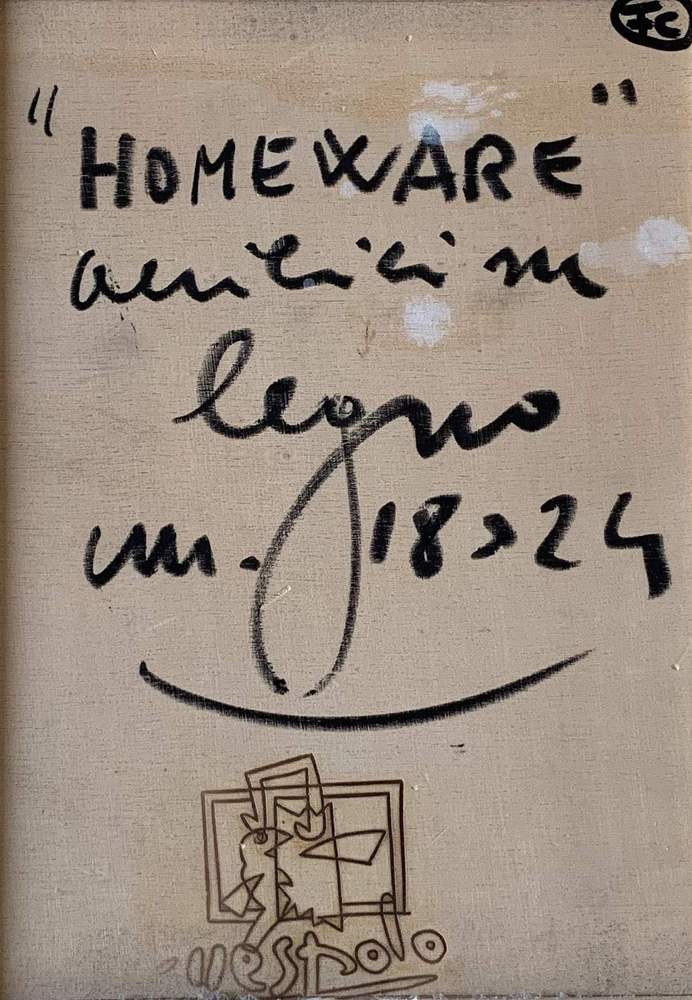 FC
"HOMEWARE"
acrilici su
legno
cm. 18x24
nespolo